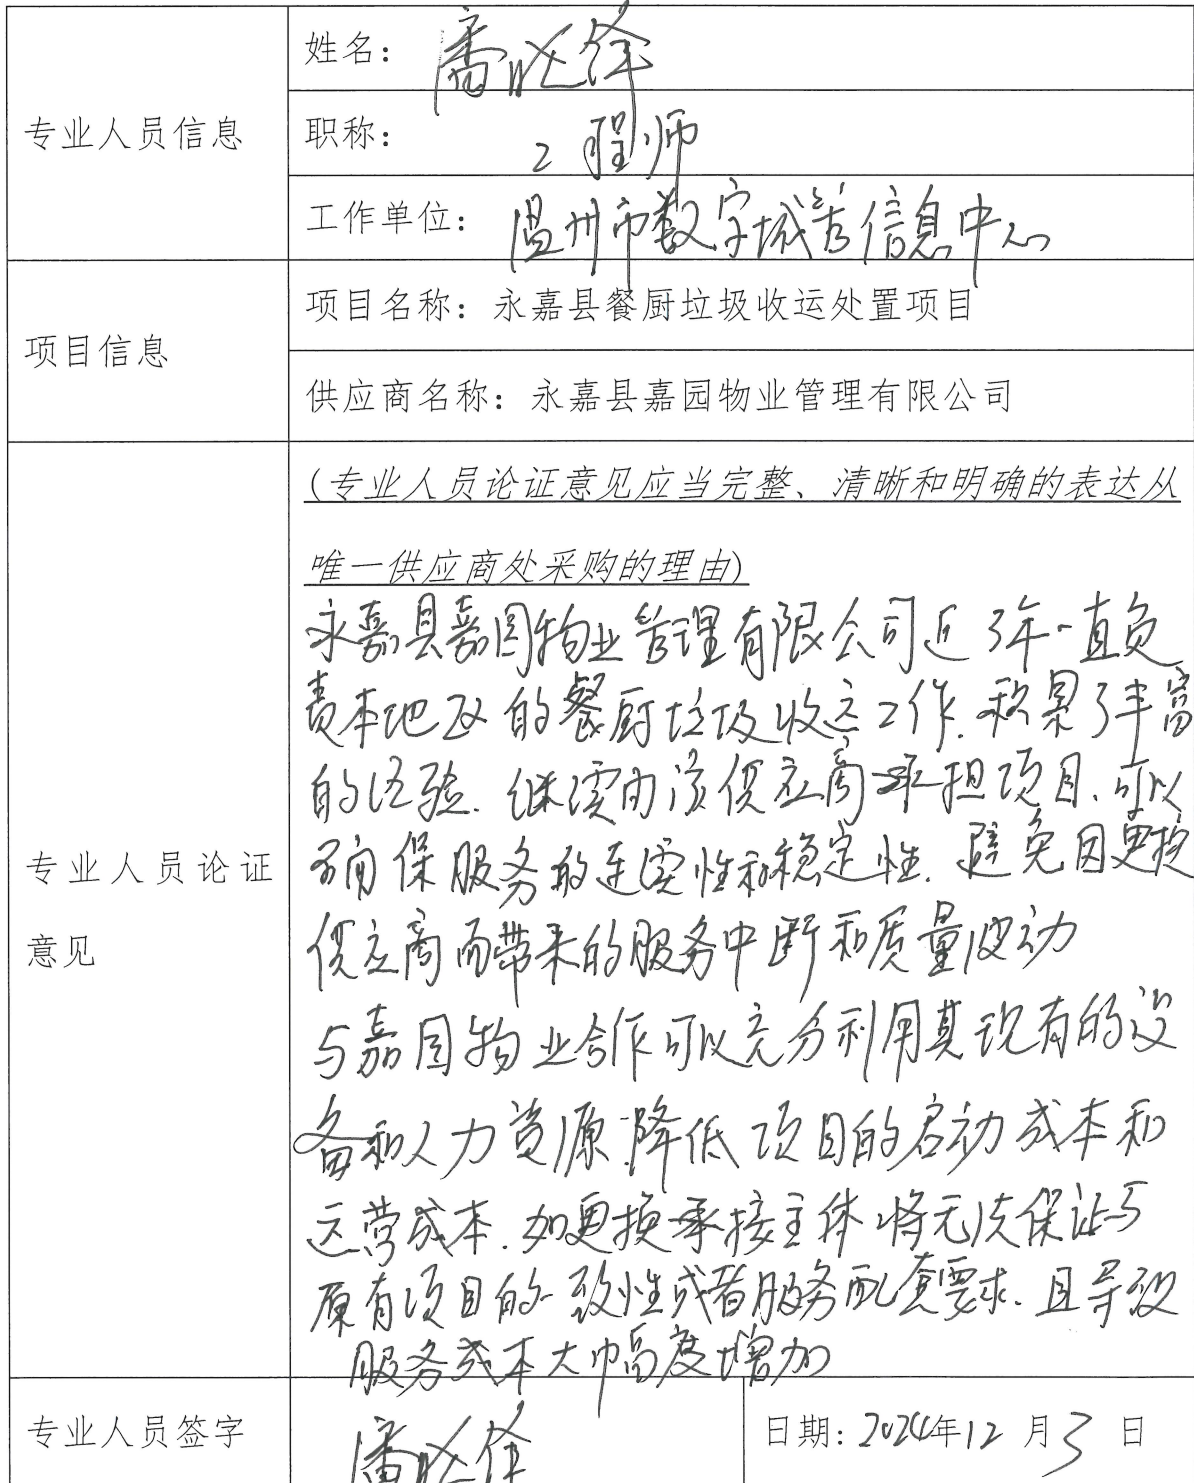 专业人员信息
姓名：潘
职称：工程师
工作单位：温州市数字城管信息中心
项目信息
项目名称：永嘉县餐厨垃圾收运处置项目
供应商名称：永嘉县嘉园物业管理有限公司
专业人员论证
意见
(专业人员论证意见应当完整、清晰和明确的表达从
唯一供应商处采购的理由)
永嘉县嘉园物业管理有限公司近3年一直负
责本地区的餐厨垃圾收运工作.积累了丰富
的经验.继续由该供应商承担项目、可以
确保服务的连续性和稳定性.避免因更换
供应商而带来的服务中断和质量波动
与嘉园物业合作可以充分利用其现有的设
备和人力资源.降低项目的启动成本和
运营成本.如更换承接主体将无法保证与
原有项目的一致性或者服务配套要求.且导致
服务成本大幅高度增加
专业人员签字
潘
日期: 2024年12月3日